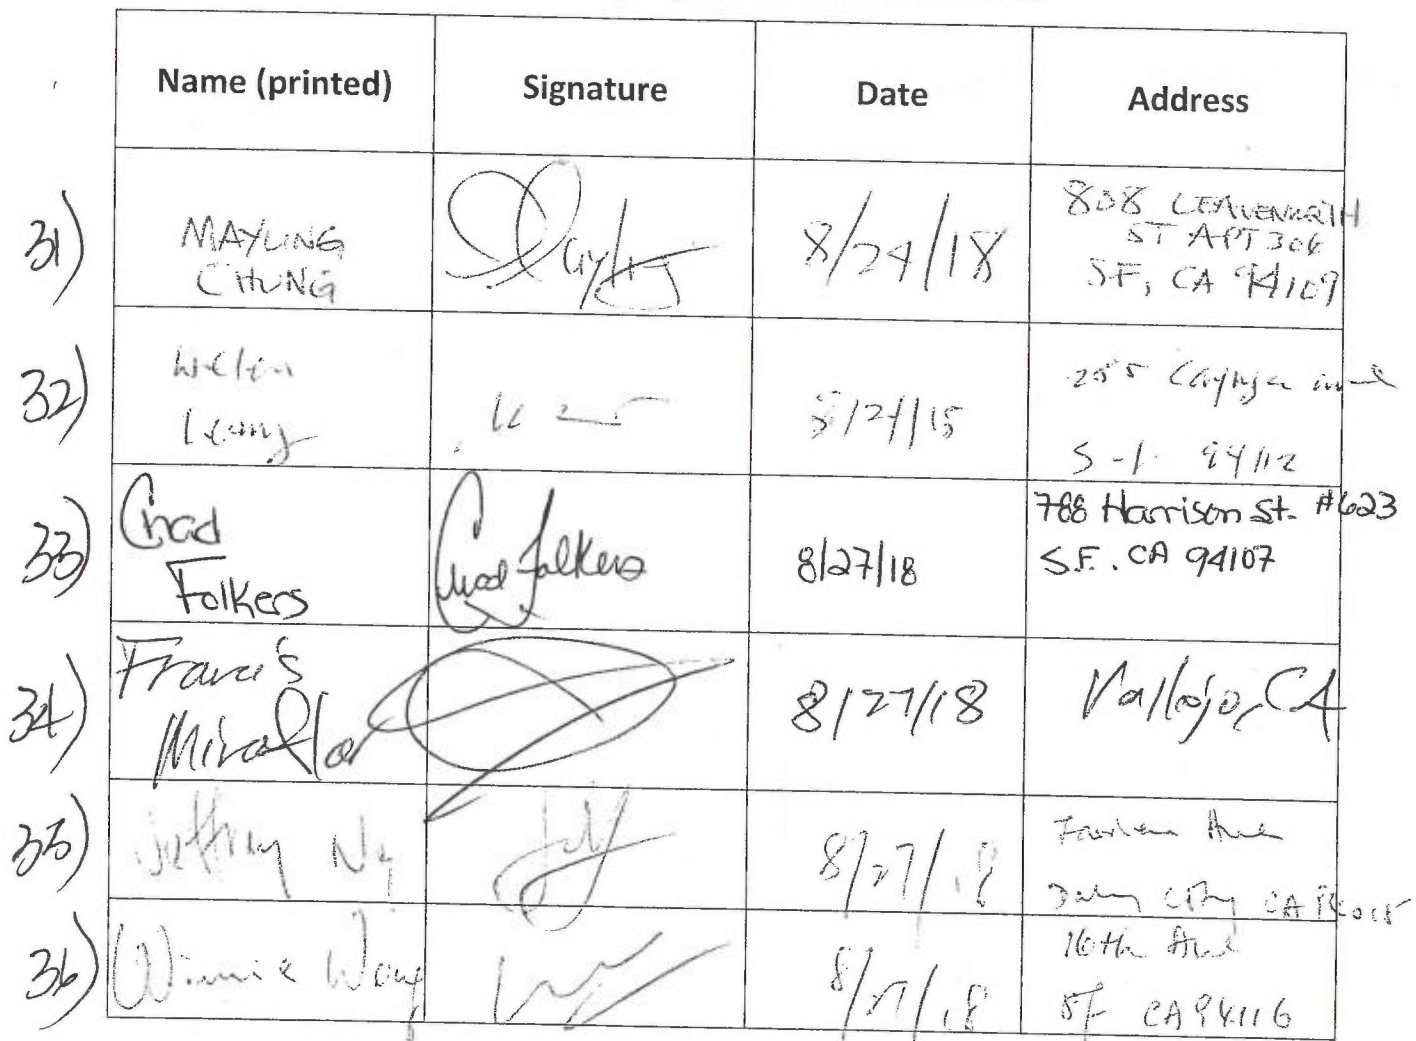 Name (printed) Signature Date Address
31) MAYLING
CHUNG
8/24/18
808 LEAVENWORTH
ST APT 306
S.F, CA 94109
32)
Leung
255 Cayuga
94112
33) Chad
Folkers
Chad Folkers
8/27/18
788 Harrison St. #623
S.F. CA 94107
34) Francis
Miraflor
8/27/18
Vallejo, CA
35) Jeffrey Ng
8/27/18
Ave
Daly City CA
36) Winnie Wong
8/27/18
16th Ave
SF CA 94116